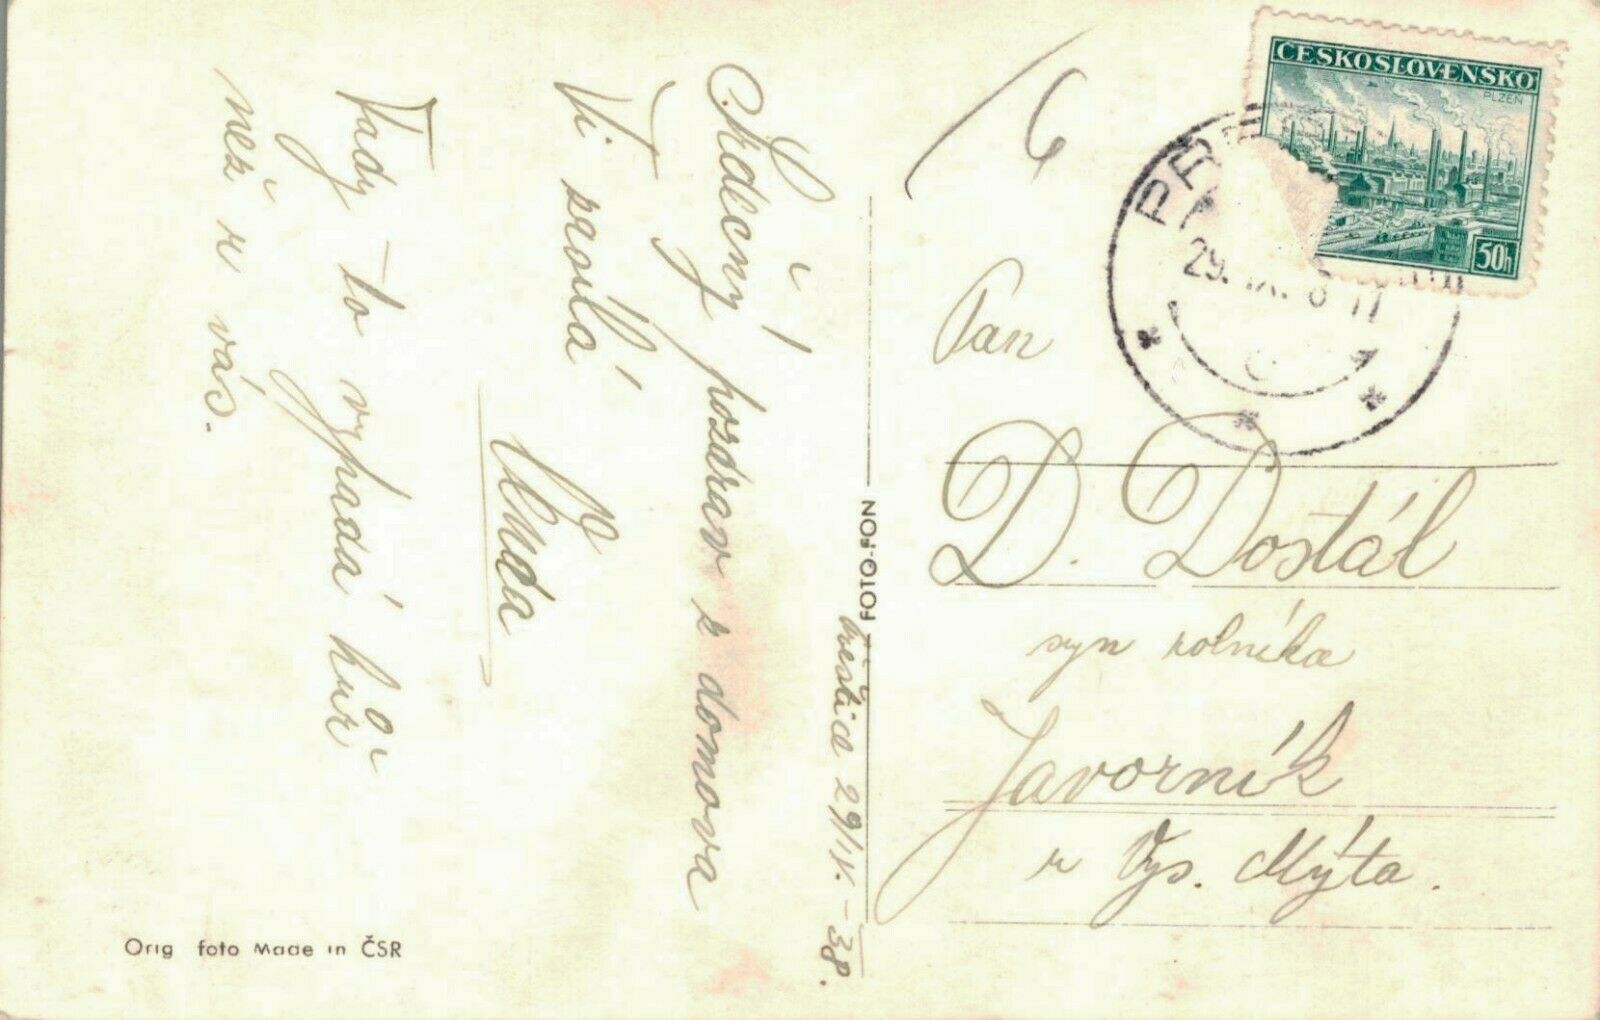 Srdečný pozdrav z domova
Vi posílá
Vlada
Tady to vypadá hůř
než u vás.
29/IX.-38.
FOTO-FON
Orig foto Made in ČSR
6
ČESKOSLOVENSKO
PLZEŇ
50h
29. IX. 8-17
Pan
D. Dostál
syn rolníka
Javorník
u Vys. Mýta.